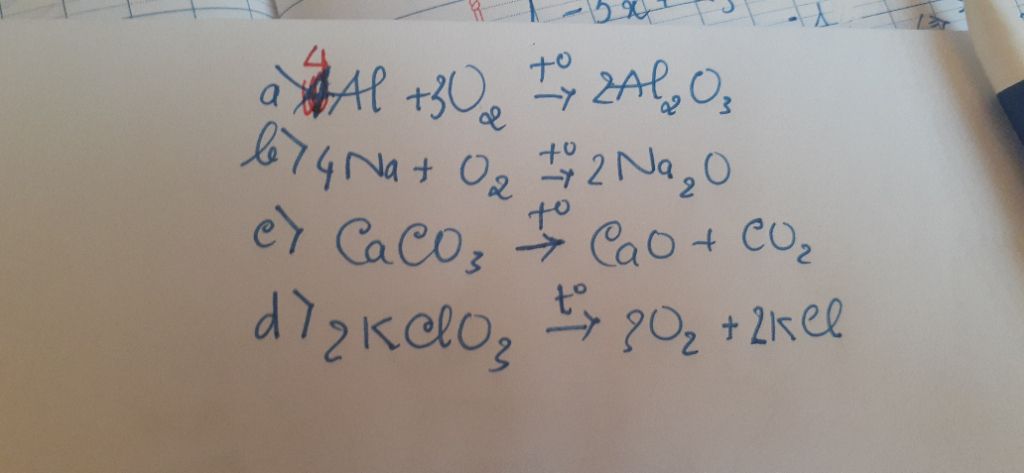 - 5x² - 3
- 1
a) 4Al + 3O₂ t° → 2Al₂O₃
b) 4Na + O₂ t° → 2Na₂O
c) CaCO₃ t° → CaO + CO₂
d) 2KClO₃ t° → 3O₂ + 2KCl